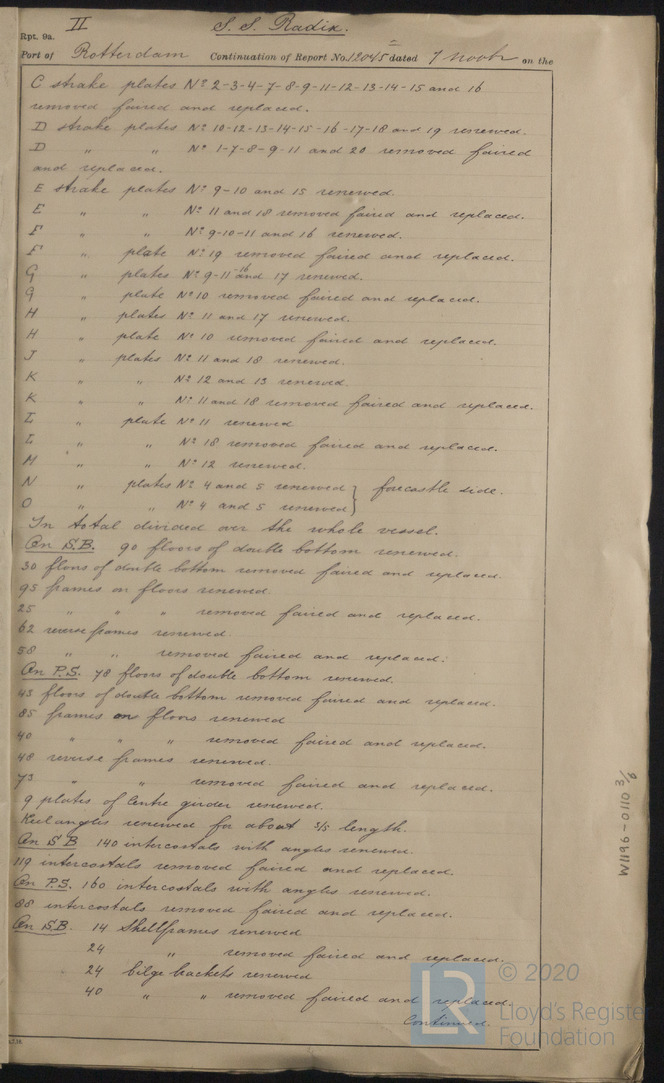 II
S. S. Radix.
Rpt. 9a.
Port of Rotterdam Continuation of Report No. 12045 dated 7 Novbr on the
C strake plates No 2-3-4-7-8-9-11-12-13-14-15 and 16
removed faired and replaced.
D strake plates No 10-12-13-14-15-16-17-18 and 19 renewed.
D " " No 1-7-8-9-11 and 20 removed faired
and replaced.
E strake plates No 9-10 and 15 renewed.
E " " No 11 and 18 removed faired and replaced.
F " " No 9-10-11 and 16 renewed.
F " plate No 19 removed faired and replaced.
G " plates No 9-11-16 and 17 renewed.
G " plate No 10 removed faired and replaced.
H " plates No 11 and 17 renewed.
H " plate No 10 removed faired and replaced.
J " plates No 11 and 18 renewed.
K " " No 12 and 13 renewed.
K " " No 11 and 18 removed faired and replaced.
L " plate No 11 renewed
L " " No 18 removed faired and replaced.
M " " No 12 renewed.
N " plates No 4 and 5 renewed } forecastle side.
O " " No 4 and 5 renewed
In total divided over the whole vessel.
On S.B. 90 floors of double bottom renewed.
30 floors of double bottom removed faired and replaced.
95 frames on floors renewed.
25 " " " removed faired and replaced.
62 reverse frames renewed.
58 " " removed faired and replaced.
On P.S. 78 floors of double bottom renewed.
43 floors of double bottom removed faired and replaced.
85 frames on floors renewed
40 " " " removed faired and replaced.
48 reverse frames renewed.
73 " " removed faired and replaced.
9 plates of Centre girder renewed.
Keel angles renewed for about 3/5 length.
On S B 140 intercostals with angles renewed.
119 intercostals removed faired and replaced.
On P.S. 160 intercostals with angles renewed.
88 intercostals removed faired and replaced.
On S.B. 14 Shellframes renewed
24 " removed faired and replaced.
24 bilge brackets renewed
40 " " removed faired and replaced.
Continued.
W1196-0110 3/9
LR
© 2020
Lloyd's Register
Foundation